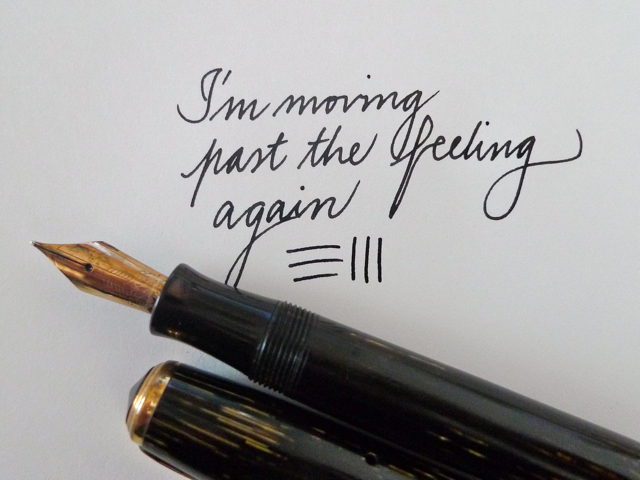 I'm moving
past the feeling
again